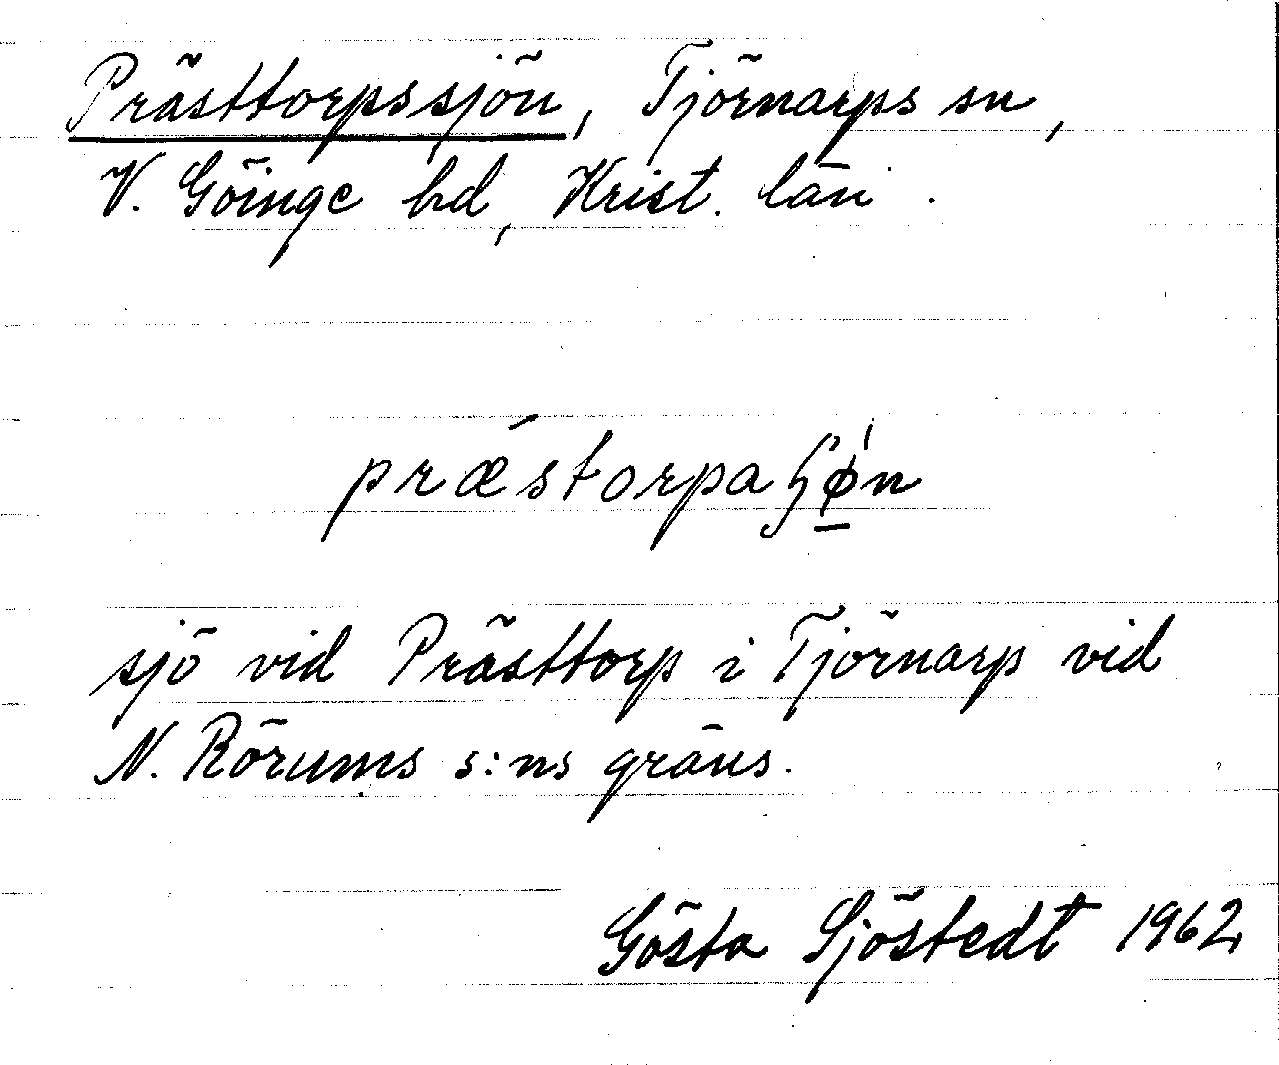 Prästtorpssjön, Tjörnarps sn,
V. Göinge hd, Krist. län.
prǽstorpaʃǿ̱n
sjö vid Prästtorp i Tjörnarp vid
N. Rörums s:ns gräns.
Gösta Sjöstedt 1962